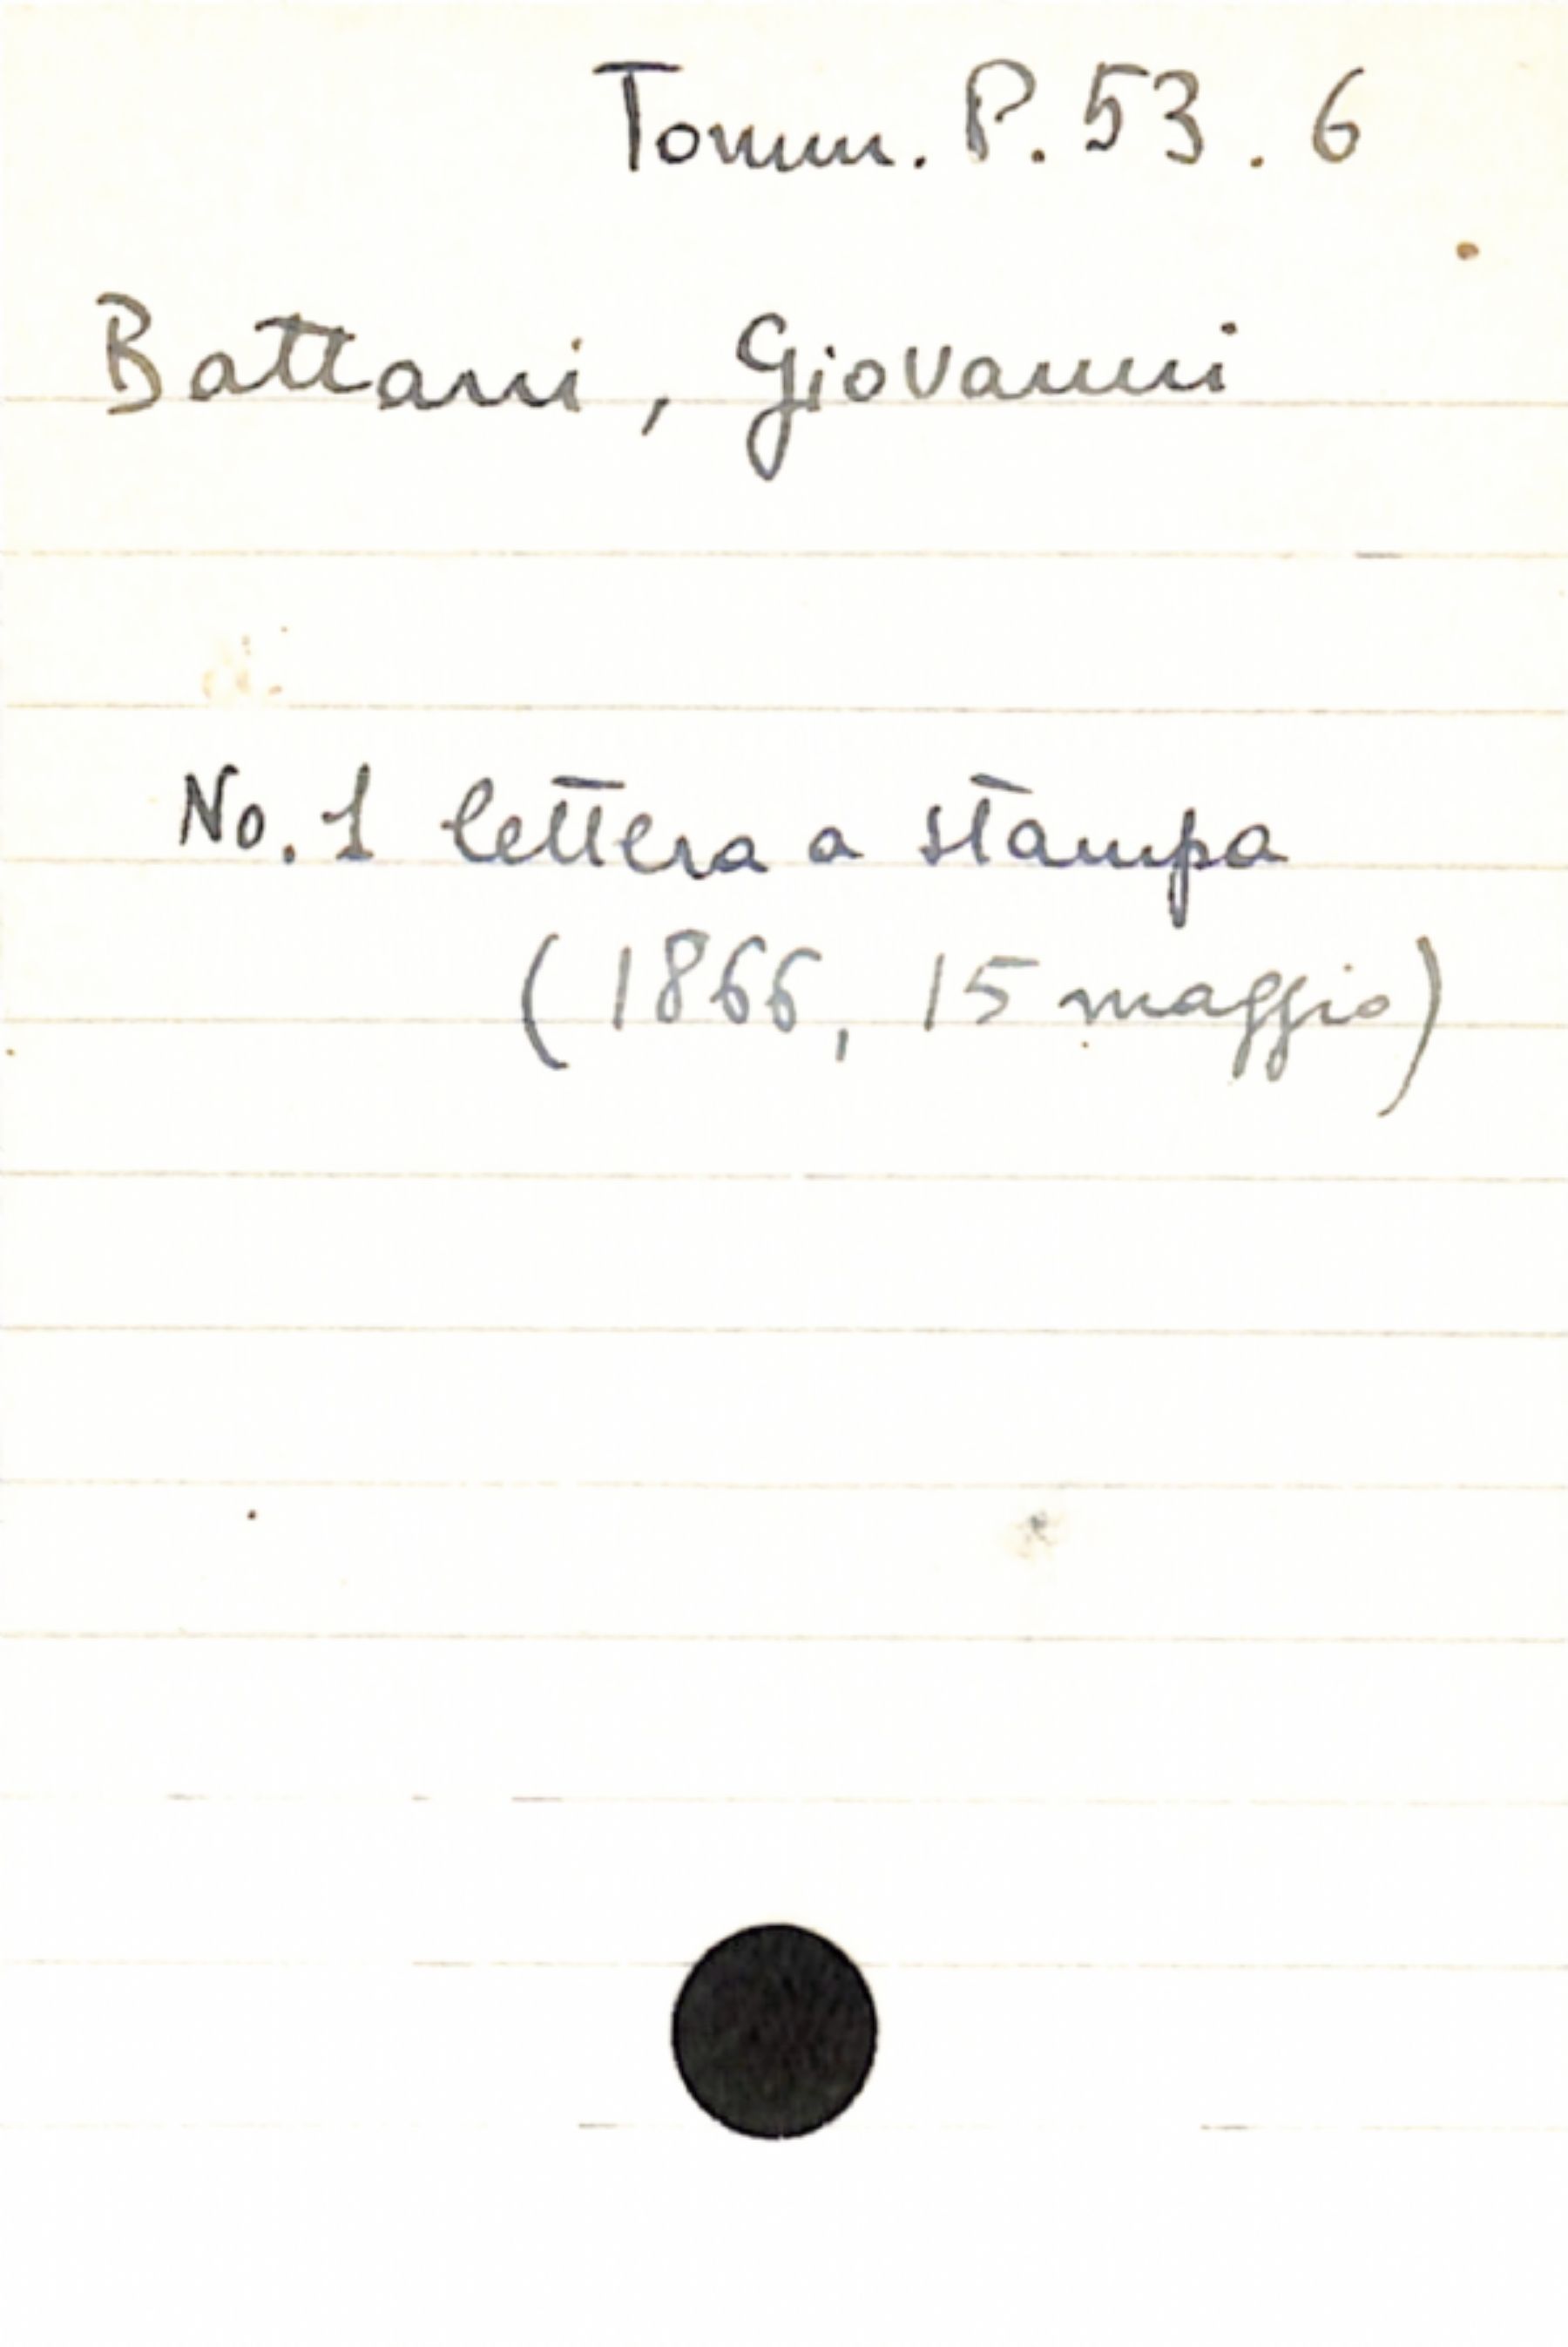 Tomm. P. 53. 6
Battani, Giovanni
No. 1 lettera a stampa
(1866, 15 maggio)